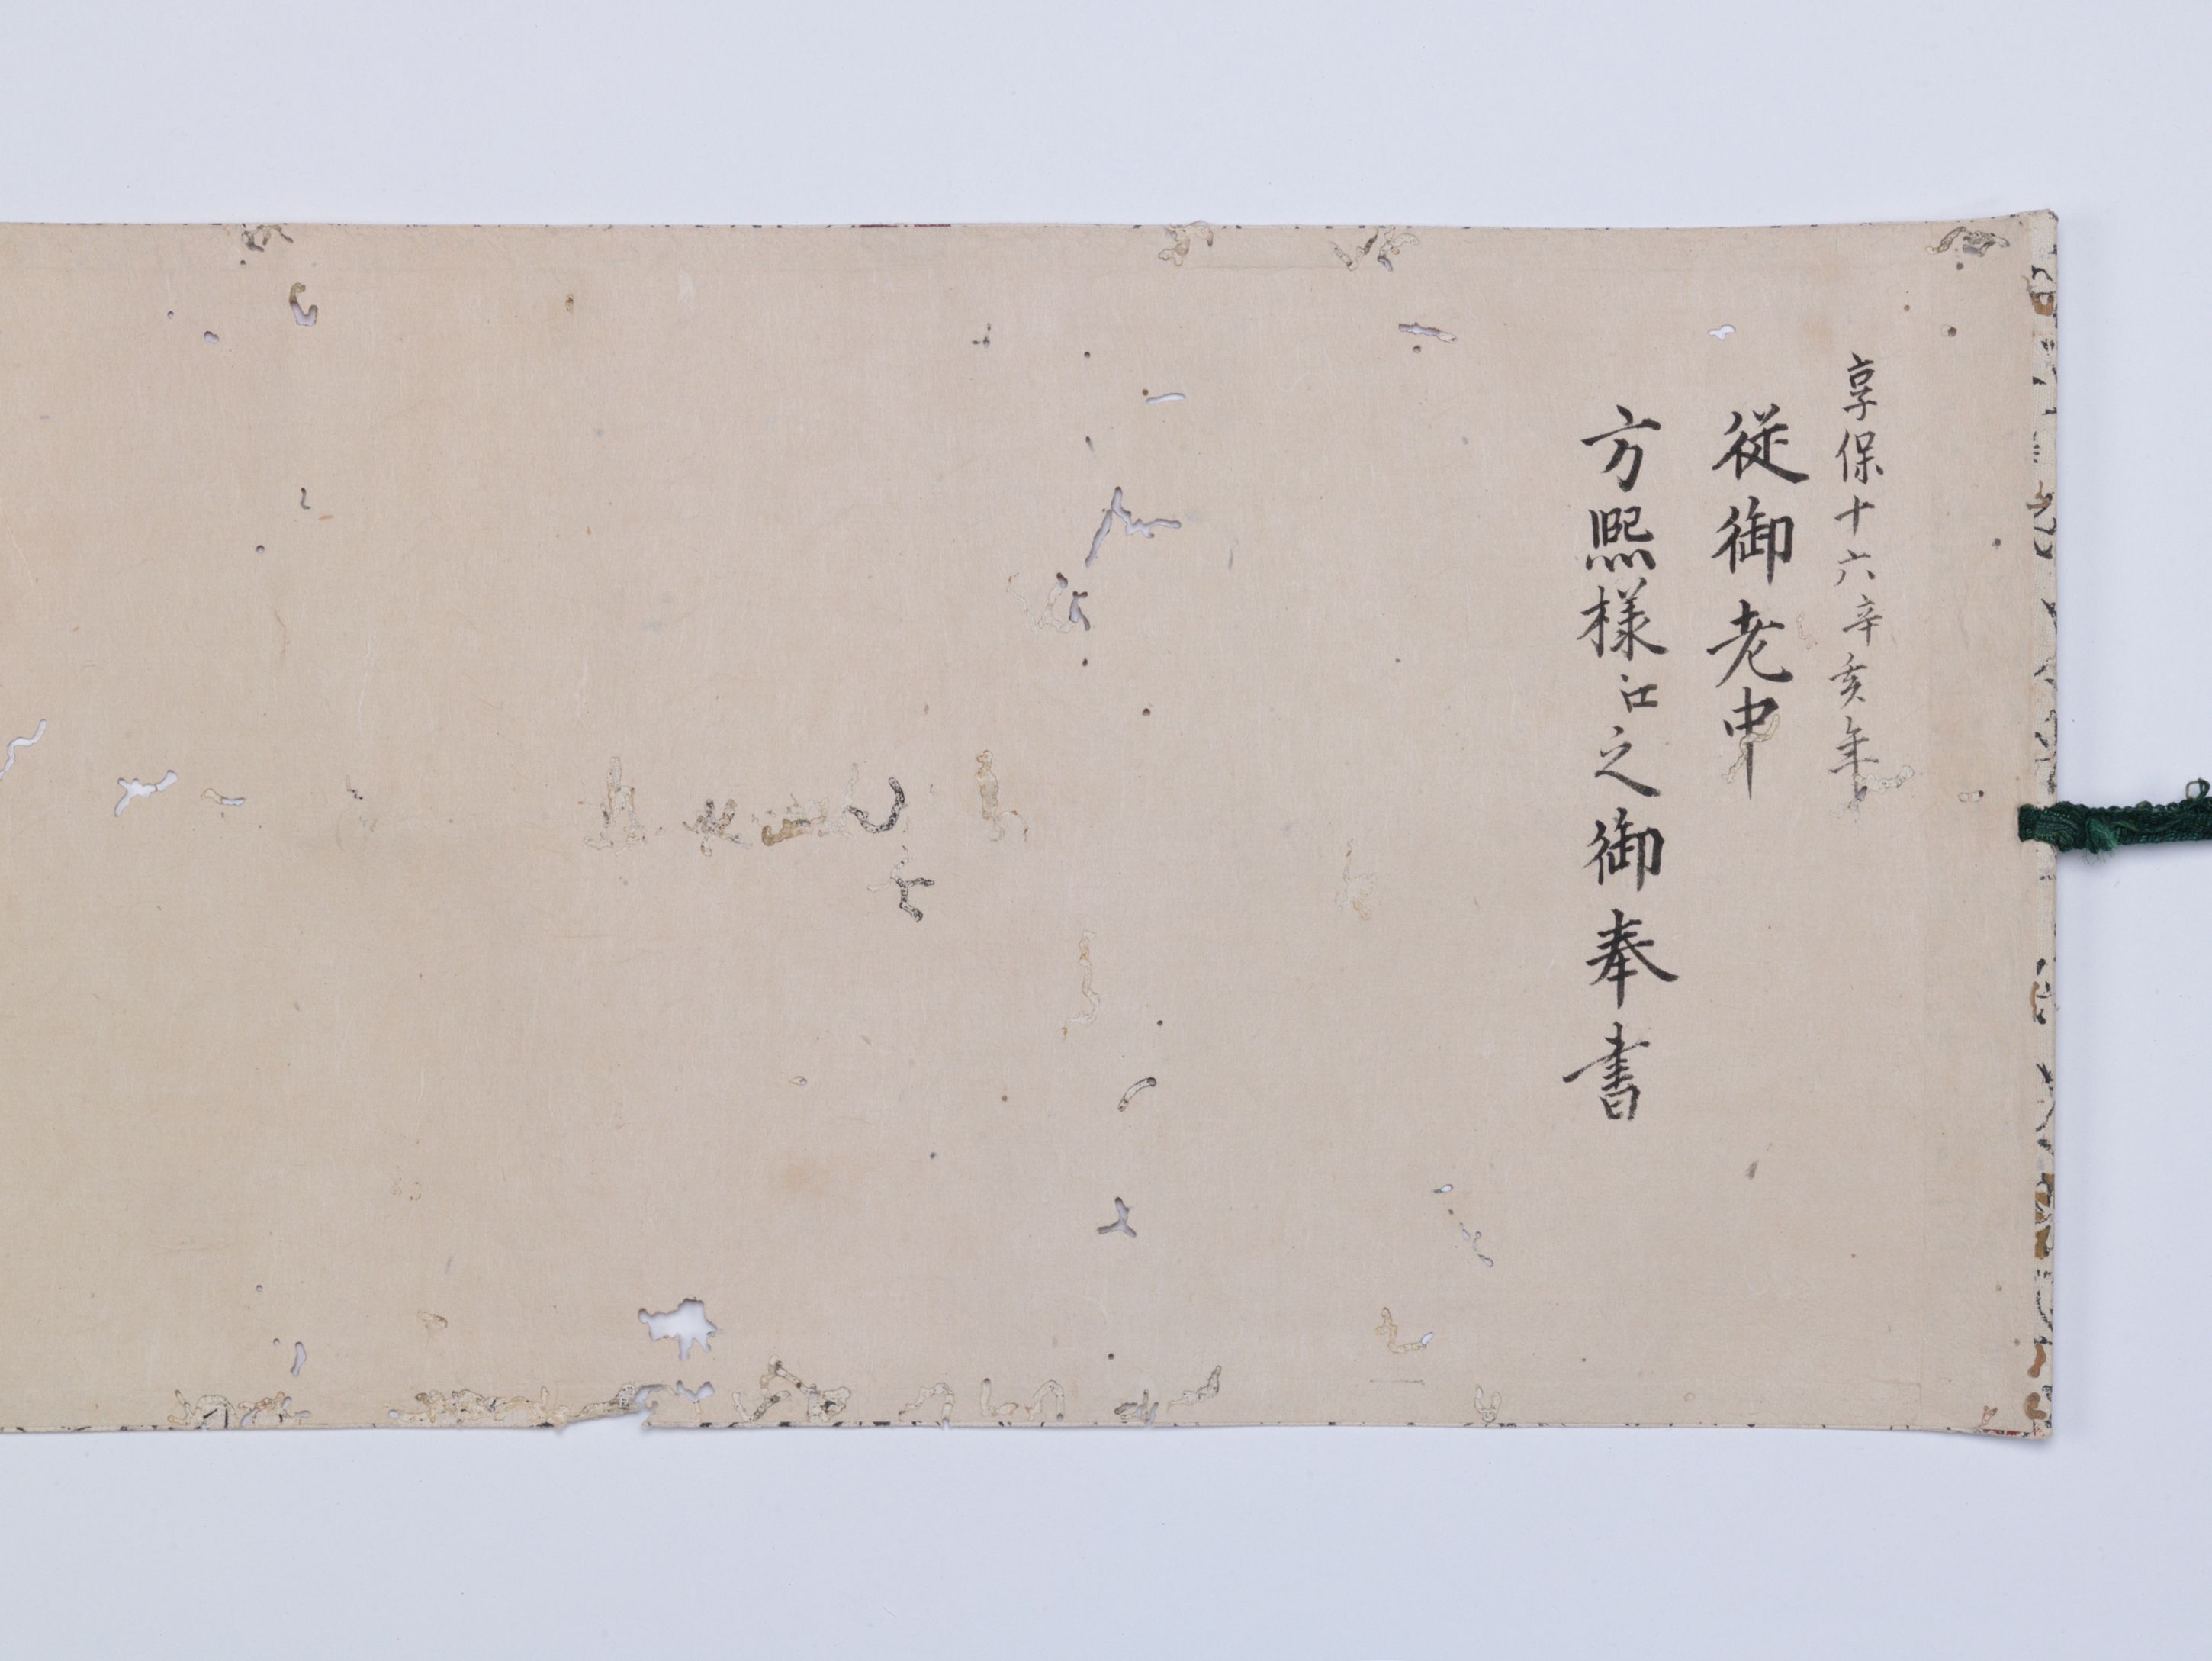 享保十六辛亥年
従御老中
方熈様江之御奉書